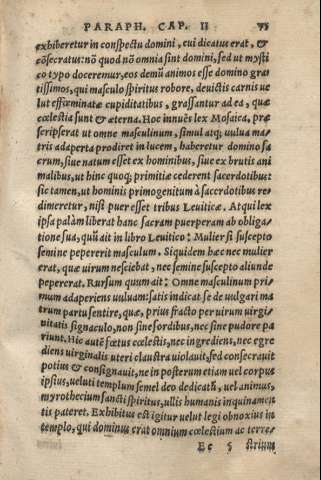 PARAPH. CAP. II
exhiberetur in conspectu domini, cui dicatus erat, &
cōsecratus: nō quod nō omnia sint domini, sed ut mysti
co typo doceremur, eos demū animos esse domino gra
tissimos, qui masculo spiritus robore, deuictis carnis ue
lut effœminatæ cupiditatibus, grassantur ad ea, quæ
cœlestia sunt & æterna. Hoc innuēs lex Mosaica, præ
scripserat ut omne masculinum, simul atq; uulua ma-
tris adaperta prodiret in lucem, haberetur domino sa
crum, siue natum esset ex hominibus, siue ex brutis ani
malibus, ut hinc quoq; primitiæ cederent sacerdotibus:
sic tamen, ut hominis primogenitum à sacerdotibus re-
dimeretur, nisi puer esset tribus Leuiticæ. Atqui lex
ipsa palàm liberat hanc sacram puerperam ab obliga-
tione sua, quū ait in libro Leuitico: Mulier si suscepto
semine pepererit masculum. Siquidem hæc nec mulier
erat, quæ uirum nesciebat, nec semine suscepto aliunde
pepererat. Rursum quum ait: Omne masculinum pri-
mum adaperiens uuluam: satis indicat se de uulgari ma
trum partu sentire, quæ, prius fracto per uirum uirgi-
nitatis signaculo, non sine sordibus, nec sine pudore pa
riunt. Hic autē fœtus cœlestis, nec ingrediens, nec egre
diens uirginalis uteri claustra uiolauit, sed consecrauit
potius & consignauit, ne in posterum etiam uel corpus
ipsius, ueluti templum semel deo dedicatū, uel animus,
myrothecium sancti spiritus, ullis humanis inquinamen
tis pateret. Exhibitus est igitur uelut legi obnoxius in
templo, qui dominus erat omnium cœlestium ac terre-
Ee 5 strium